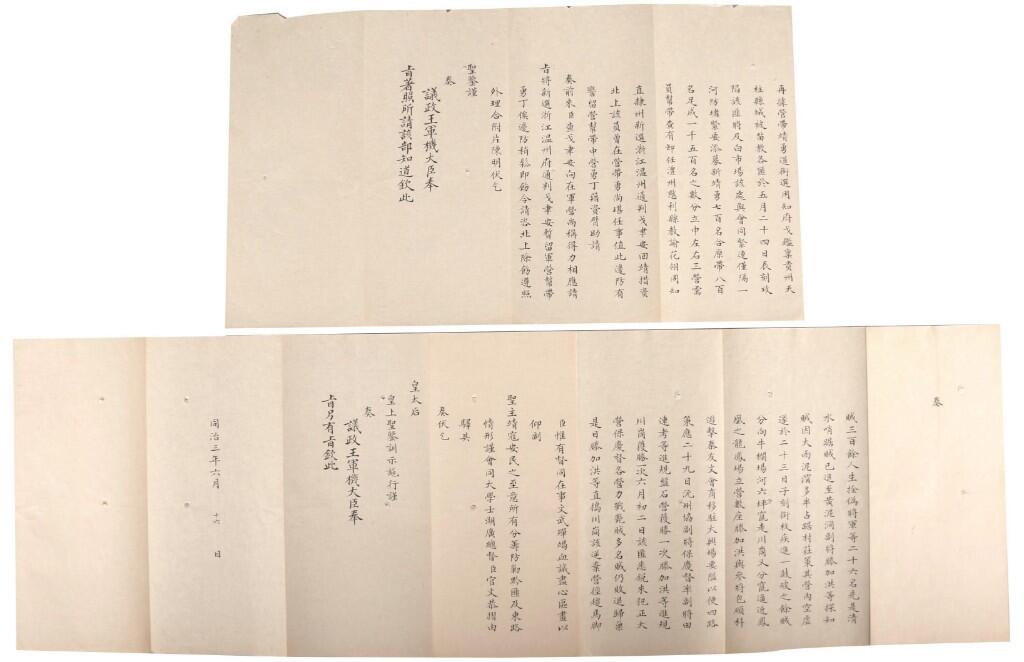 再據管帶靖勇道銜選用知府戈鑑稟貴州天
柱縣城被苗教各匪於五月二十四日辰刻攻
陷該匪將及白市場該處與會同緊連僅隔一
河防堵緊要添募新靖勇七百名合原帶八百
名足成一千五百名之數分立中左右三營需
員幫帶查有卸任澧州慈利縣教諭花翎同知
直隸州新選浙江溫州通判戈聿安回靖措資
北上該員曾在營帶勇尚堪任事值此邊防有
警留營幫帶中營勇丁藉資臂助請
奏前來臣查戈聿安向在軍營尚稱得力相應請
旨將新選浙江溫州府通判戈聿安暫留軍營幫帶
勇丁俟邊防稍鬆即飭令請咨北上除飭遵照
外理合附片陳明伏乞
聖鑒謹
奏
議政王軍機大臣奉
旨著照所請該部知道欽此
奏
賊三百餘人生擒偽將軍等二十六名先是清
水哨踞賊已退至黃泥洞副將滕加洪等探知
賊因大雨泥濘多半占踞村莊菓其營內空虛
遂於二十三日子刻銜枚疾進一鼓破之餘賊
分向牛欄場河六坪竄走川崗又分竄逼近鳳
凰之龍鳳場立營數座滕加洪與參將包順科
遊擊秦友文會商移駐大興場要隘以便四路
策應二十九日沅州協副將保慶督率副將田
連考等進規盤石營獲勝一次滕加洪等進規
川崗獲勝一次六月初二日該匪悉銳來犯正大
營保慶督各營力戰斃賊多名賊仍敗退歸巢
是日滕加洪等直搗川崗該逆棄營徑趨馬腳
臣惟有督同在事文武殫竭血誠盡心區畫以
仰副
聖主靖寇安民之至意所有分籌防勦黔匪及東路
情形謹會同大學士湖廣總督臣官文恭摺由
驛具
奏伏乞
皇太后
皇上聖鑒訓示施行謹
奏
議政王軍機大臣奉
旨另有旨欽此
同治三年六月 十六 日